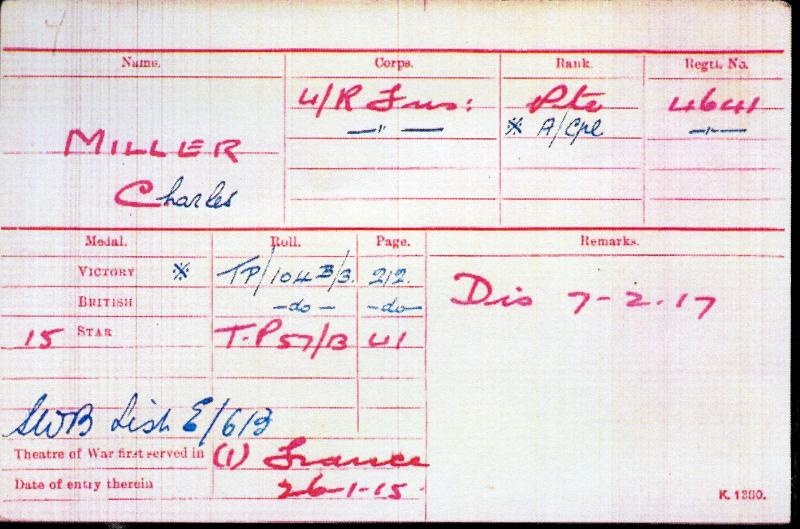 Name. Corps. Rank. Regtl. No.
4/R Fus: Pte 4641
—"— * A/Cpl —"—
MILLER
Charles
Medal. Roll. Page. Remarks.
VICTORY * TP/104B/3. 212.
BRITISH -do- -do-
15 STAR T.P 57/B 41
Dis 7-2-17
SWB List E/613
Theatre of War first served in (1) France
Date of entry therein 26-1-15.
K. 1380.